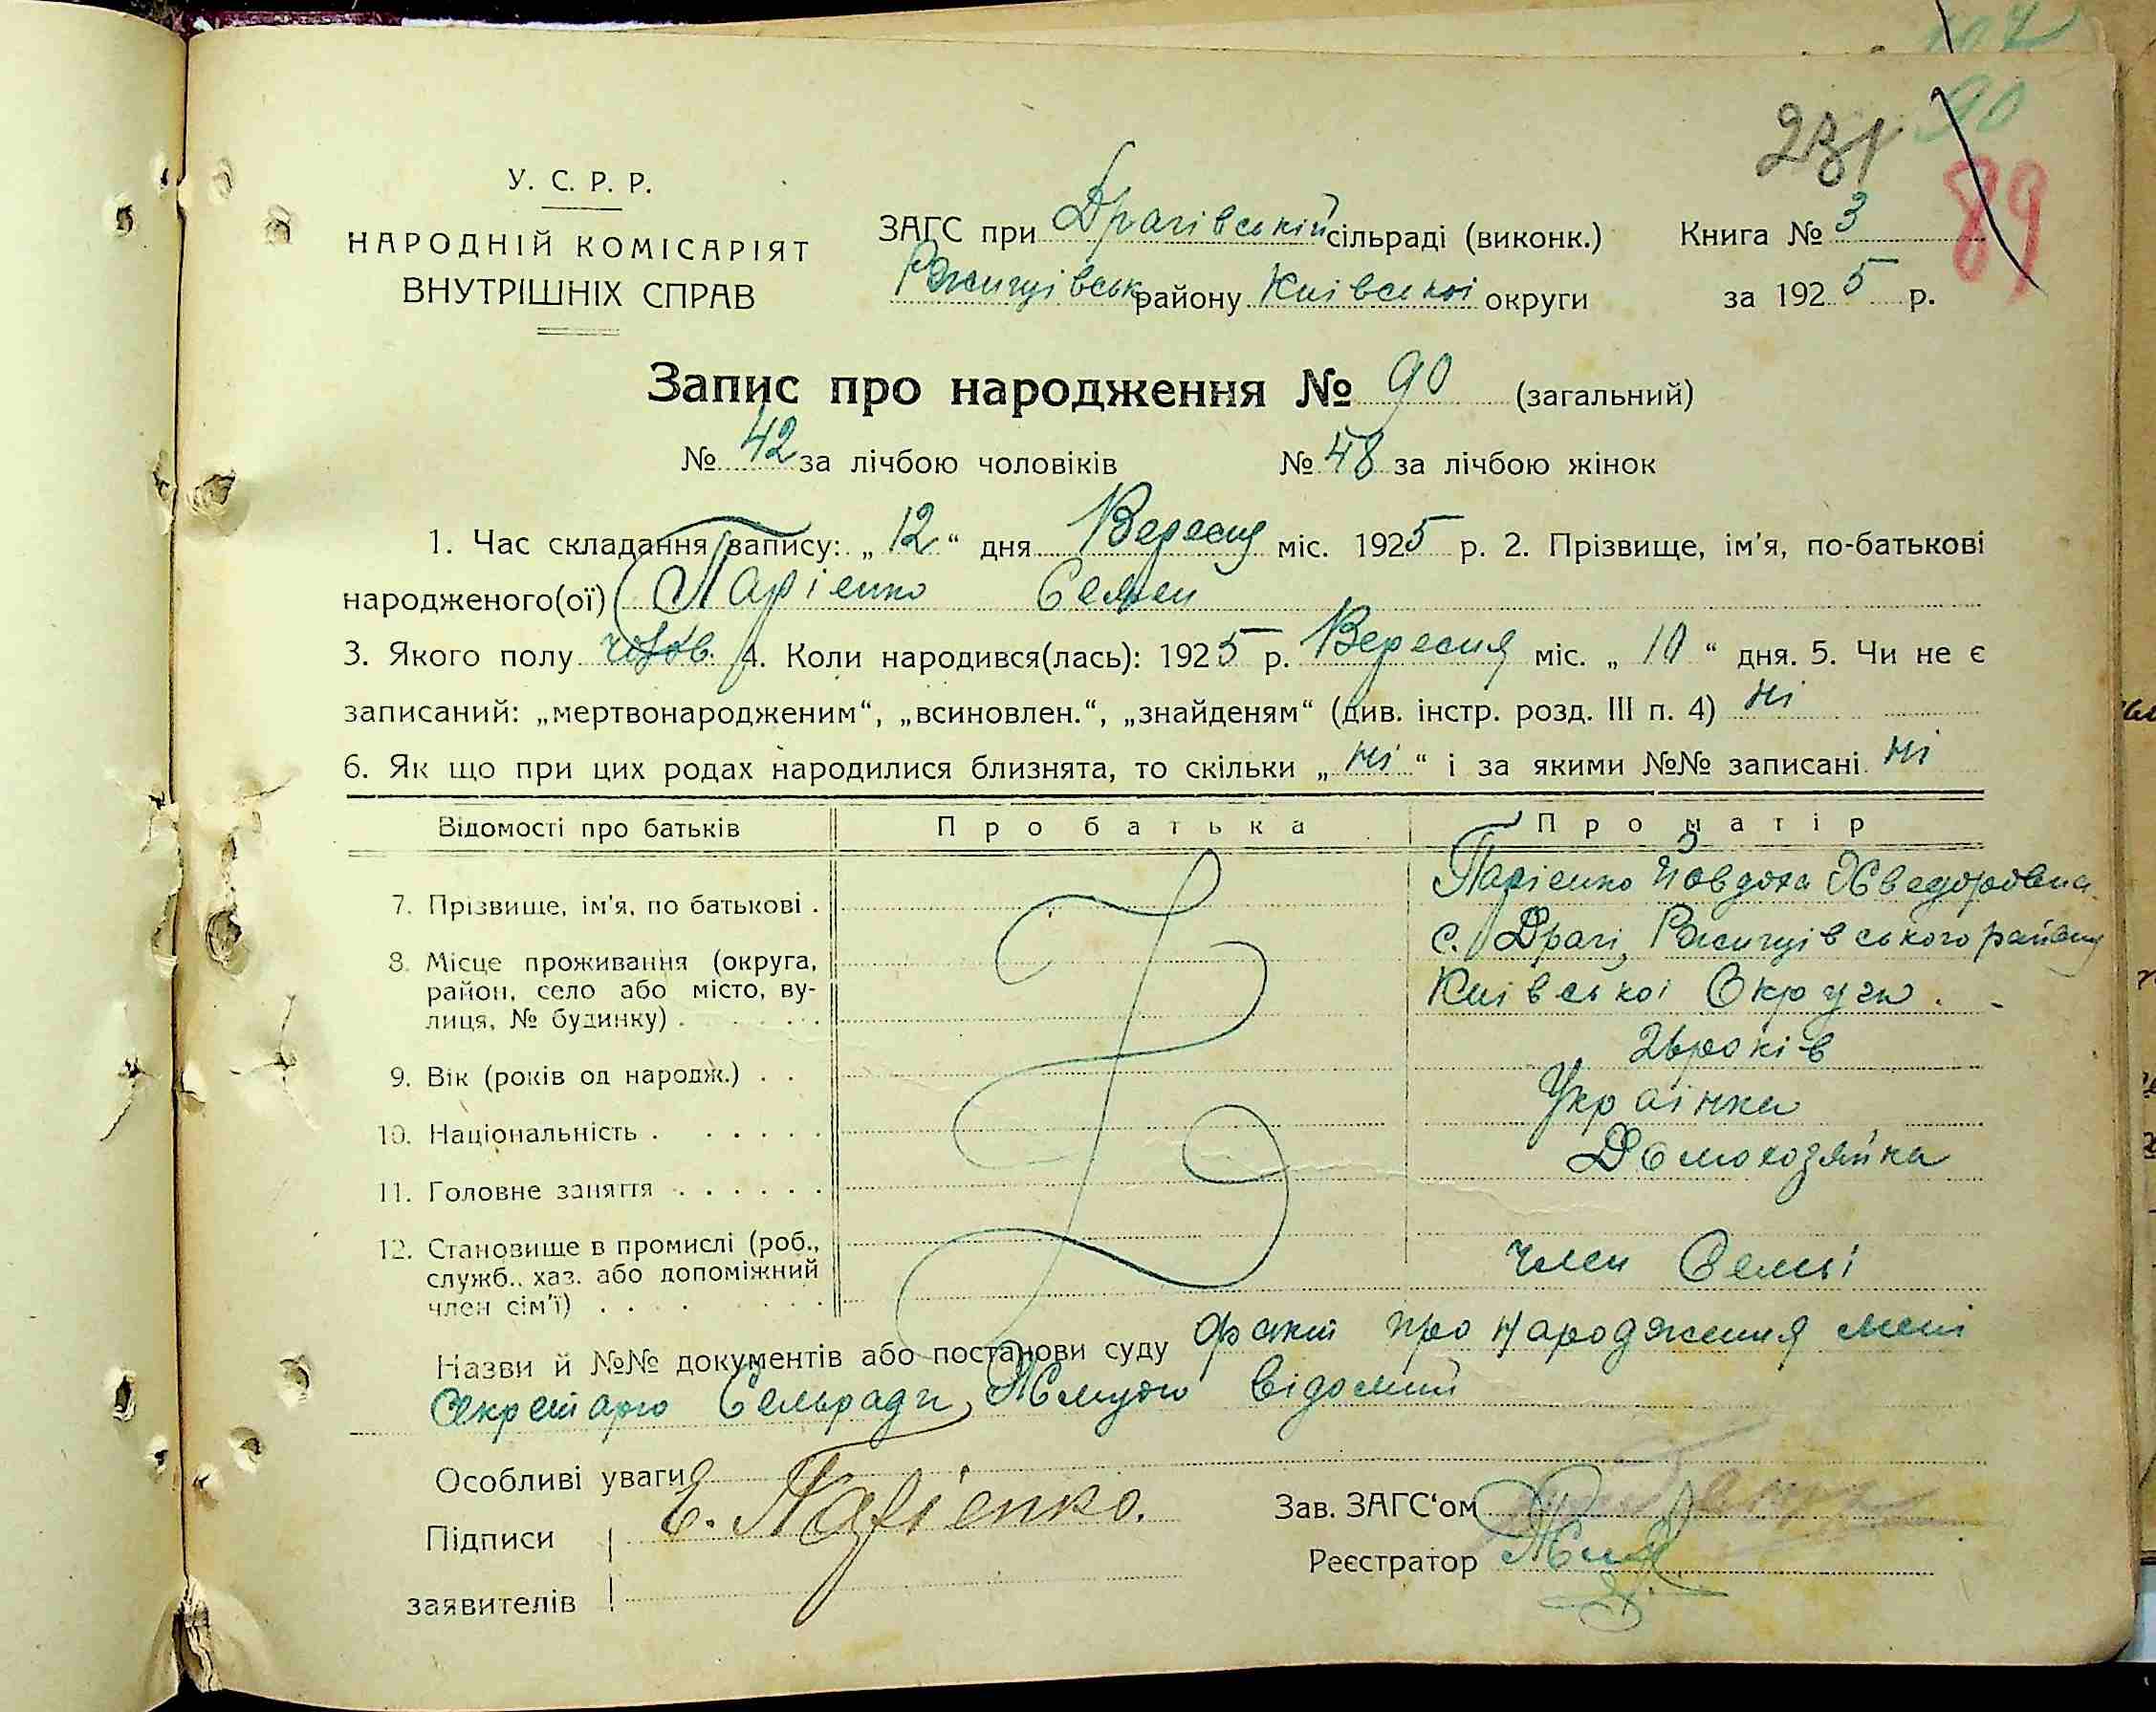 107
90
231
89
У. С. Р. Р.
НАРОДНІЙ КОМІСАРІЯТ
ВНУТРІШНІХ СПРАВ
ЗАГС при Драгівській сільраді (виконк.)
Ржищівськ району Киівськоі округи
Книга № 3
за 1925 р.
Запис про народження № 90 (загальний)
№ 42 за лічбою чоловіків № 48 за лічбою жінок
1. Час складання запису: „12“ дня Вересня міс. 1925 р. 2. Прізвище, ім'я, по-батькові
народженого(ої) Парієнко Семен
3. Якого полу чолов. 4. Коли народився(лась): 1925 р. Вересня міс. „10“ дня. 5. Чи не є
записаний: „мертвонародженим“, „всиновлен.“, „знайденям“ (див. інстр. розд. III п. 4) ні
6. Як що при цих родах народилися близнята, то скільки „ні“ і за якими №№ записані ні
Відомості про батьків Про батька Про матір
7. Прізвище, ім'я, по батькові . Парієнко Йовдоха
8. Місце проживання (округа, с. Драгі, Ржищівського району
район, село або місто, ву-
лиця, № будинку) . Киівськоі Округи.
9. Вік (років од народж.) . . 26 років
10. Національність . Украінка
11. Головне заняття . Домохозяйка
12. Становище в промислі (роб.,
служб., хаз. або допоміжний
член сім'ї) . член Семьі
Назви й №№ документів або постанови суду факт про народження мені
Секретарю Сельради відомий
Особливі уваги
Підписи Е. Парієнко.
заявителів
Зав. ЗАГС‘ом
Реєстратор